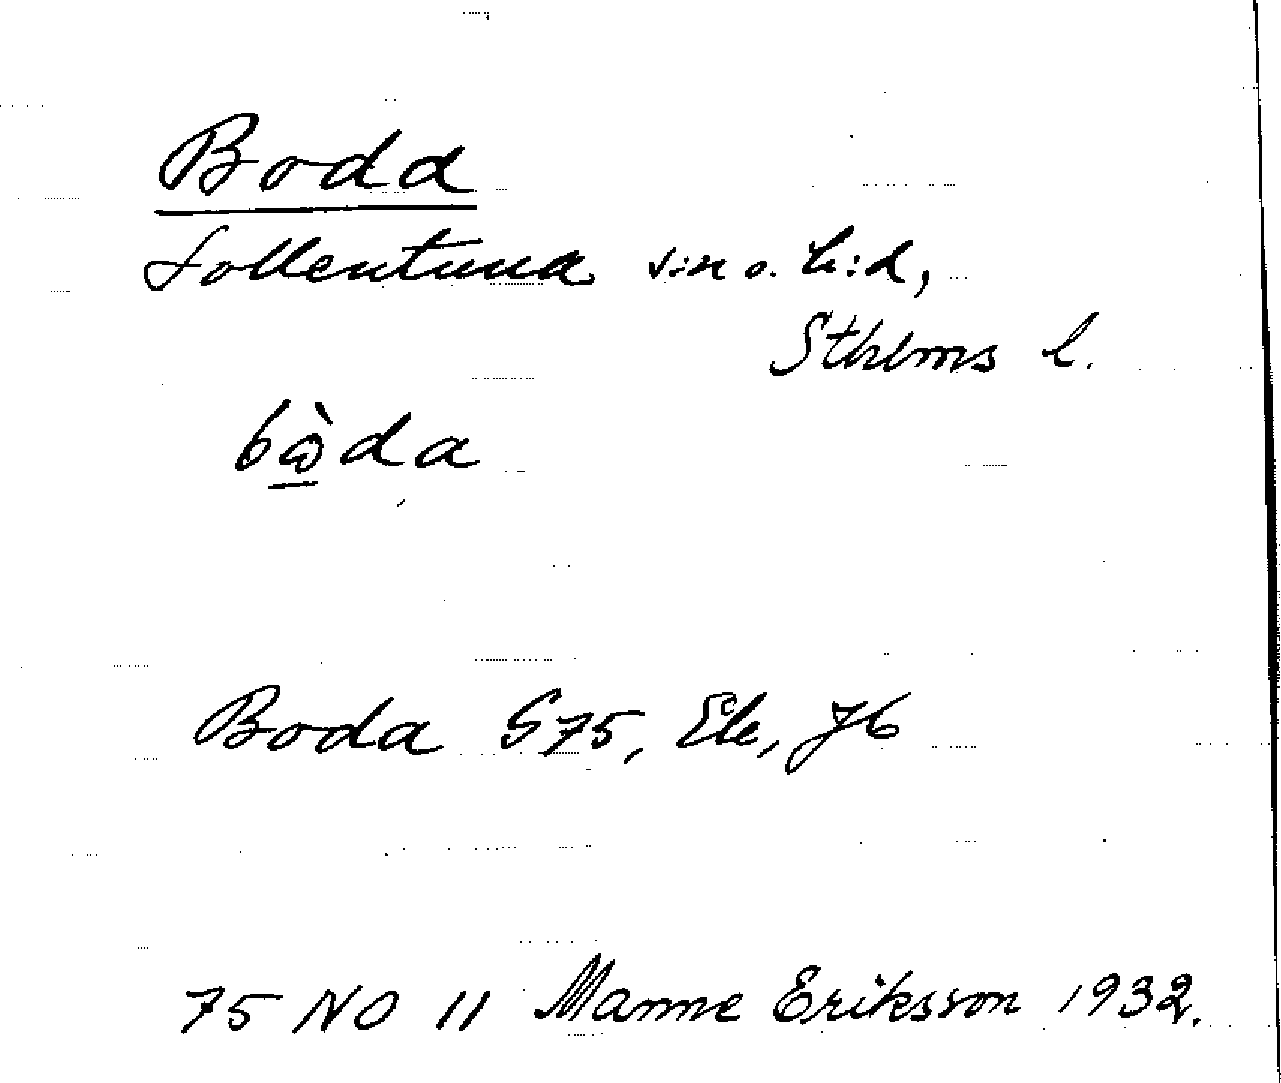 Boda
Sollentuna s:n o. h:d,
Sthlms l.
bὼda
Boda G75, Ek, Jb
75 NO 11 Manne Eriksson 1932.